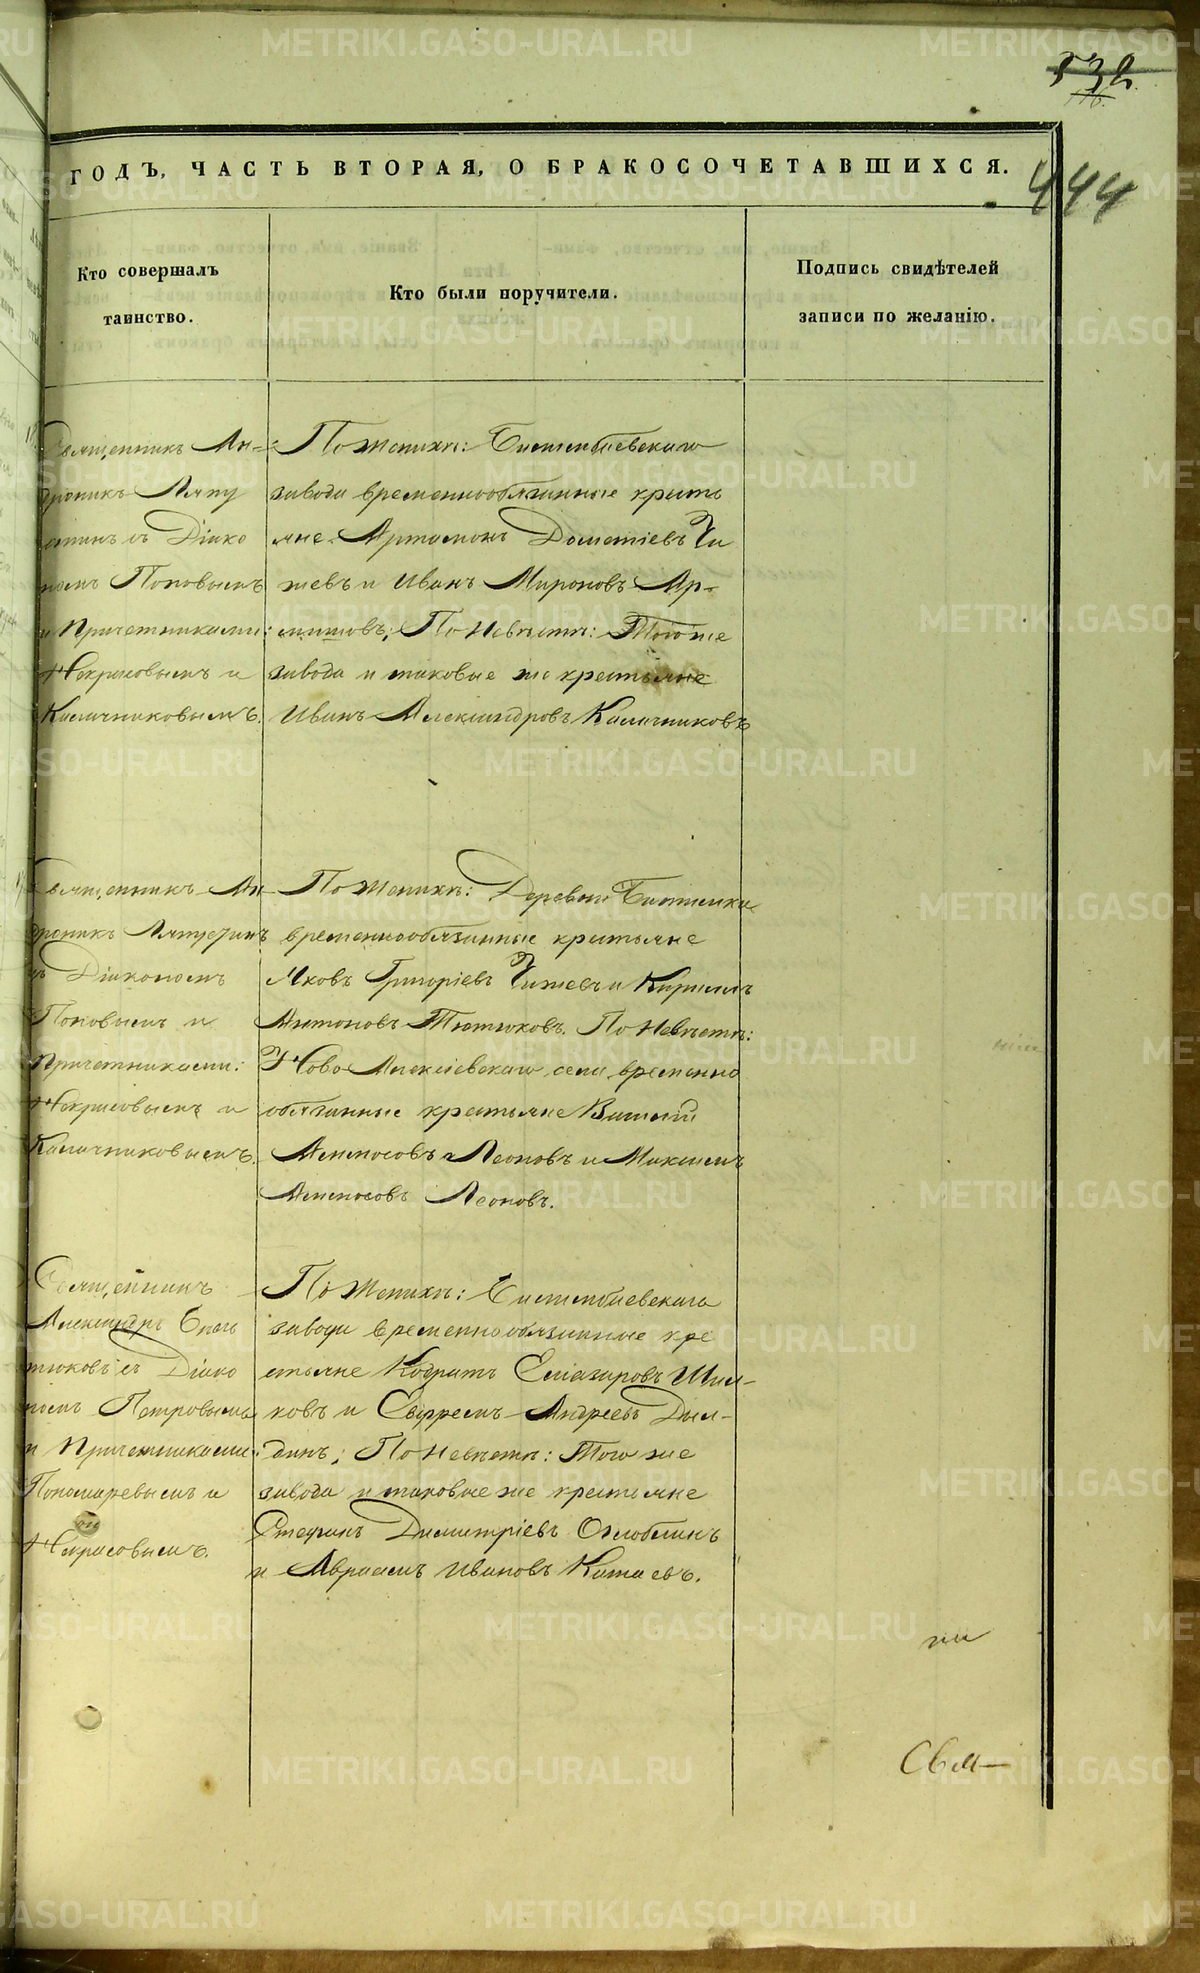 532
444
ГОДЪ, ЧАСТЬ ВТОРАЯ, О БРАКОСОЧЕТАВШИХСЯ.
Кто совершалъ
таинство.
Кто были поручители.
Подпись свидѣтелей
записи по желанію.
Священникъ Ан-
дроникъ Ляпу
стинъ съ Діако
номъ Поповымъ
и Причетниками:
Некрасовымъ и
Калачниковымъ.
По женихѣ: Билимбаевскаго
завода временнообязанные кресть
яне Артамонъ Дометіевъ Чи
жевъ и Иванъ Мироновъ Ар-
По Невѣстѣ: Тогоже
завода и таковые же крестьяне
Иванъ Александровъ Калачниковъ
Священникъ Ан
дроникъ Ляпустинъ
съ Діакономъ
Поповымъ и
Причетниками:
Некрасовымъ и
Калачниковымъ.
По женихѣ: Деревни
временнообязанные крестьяне
Яковъ Григоріевъ Чижевъ и Кирилъ
Антоновъ Тютюковъ. По Невѣстѣ:
Ново-Алексіевскаго села временно
обязанные крестьяне Василій
Леоновъ и Максимъ
Леоновъ.
Священникъ
Александръ
съ Діако
номъ Петровымъ
и Причетниками:
Пономаревымъ и
Некрасовымъ.
По женихѣ: Билимбаевскаго
завода временнообязанные кре
стьяне Кодратъ Еліазаровъ Шил-
ковъ и Ефремъ Андреевъ Дыл-
динъ; По невѣстѣ: Того же
завода и таковые же крестьяне
Стефанъ Димитріевъ Оглоблинъ
и Авраамъ Ивановъ Катаевъ.
METRIKI.GASO-URAL.RU